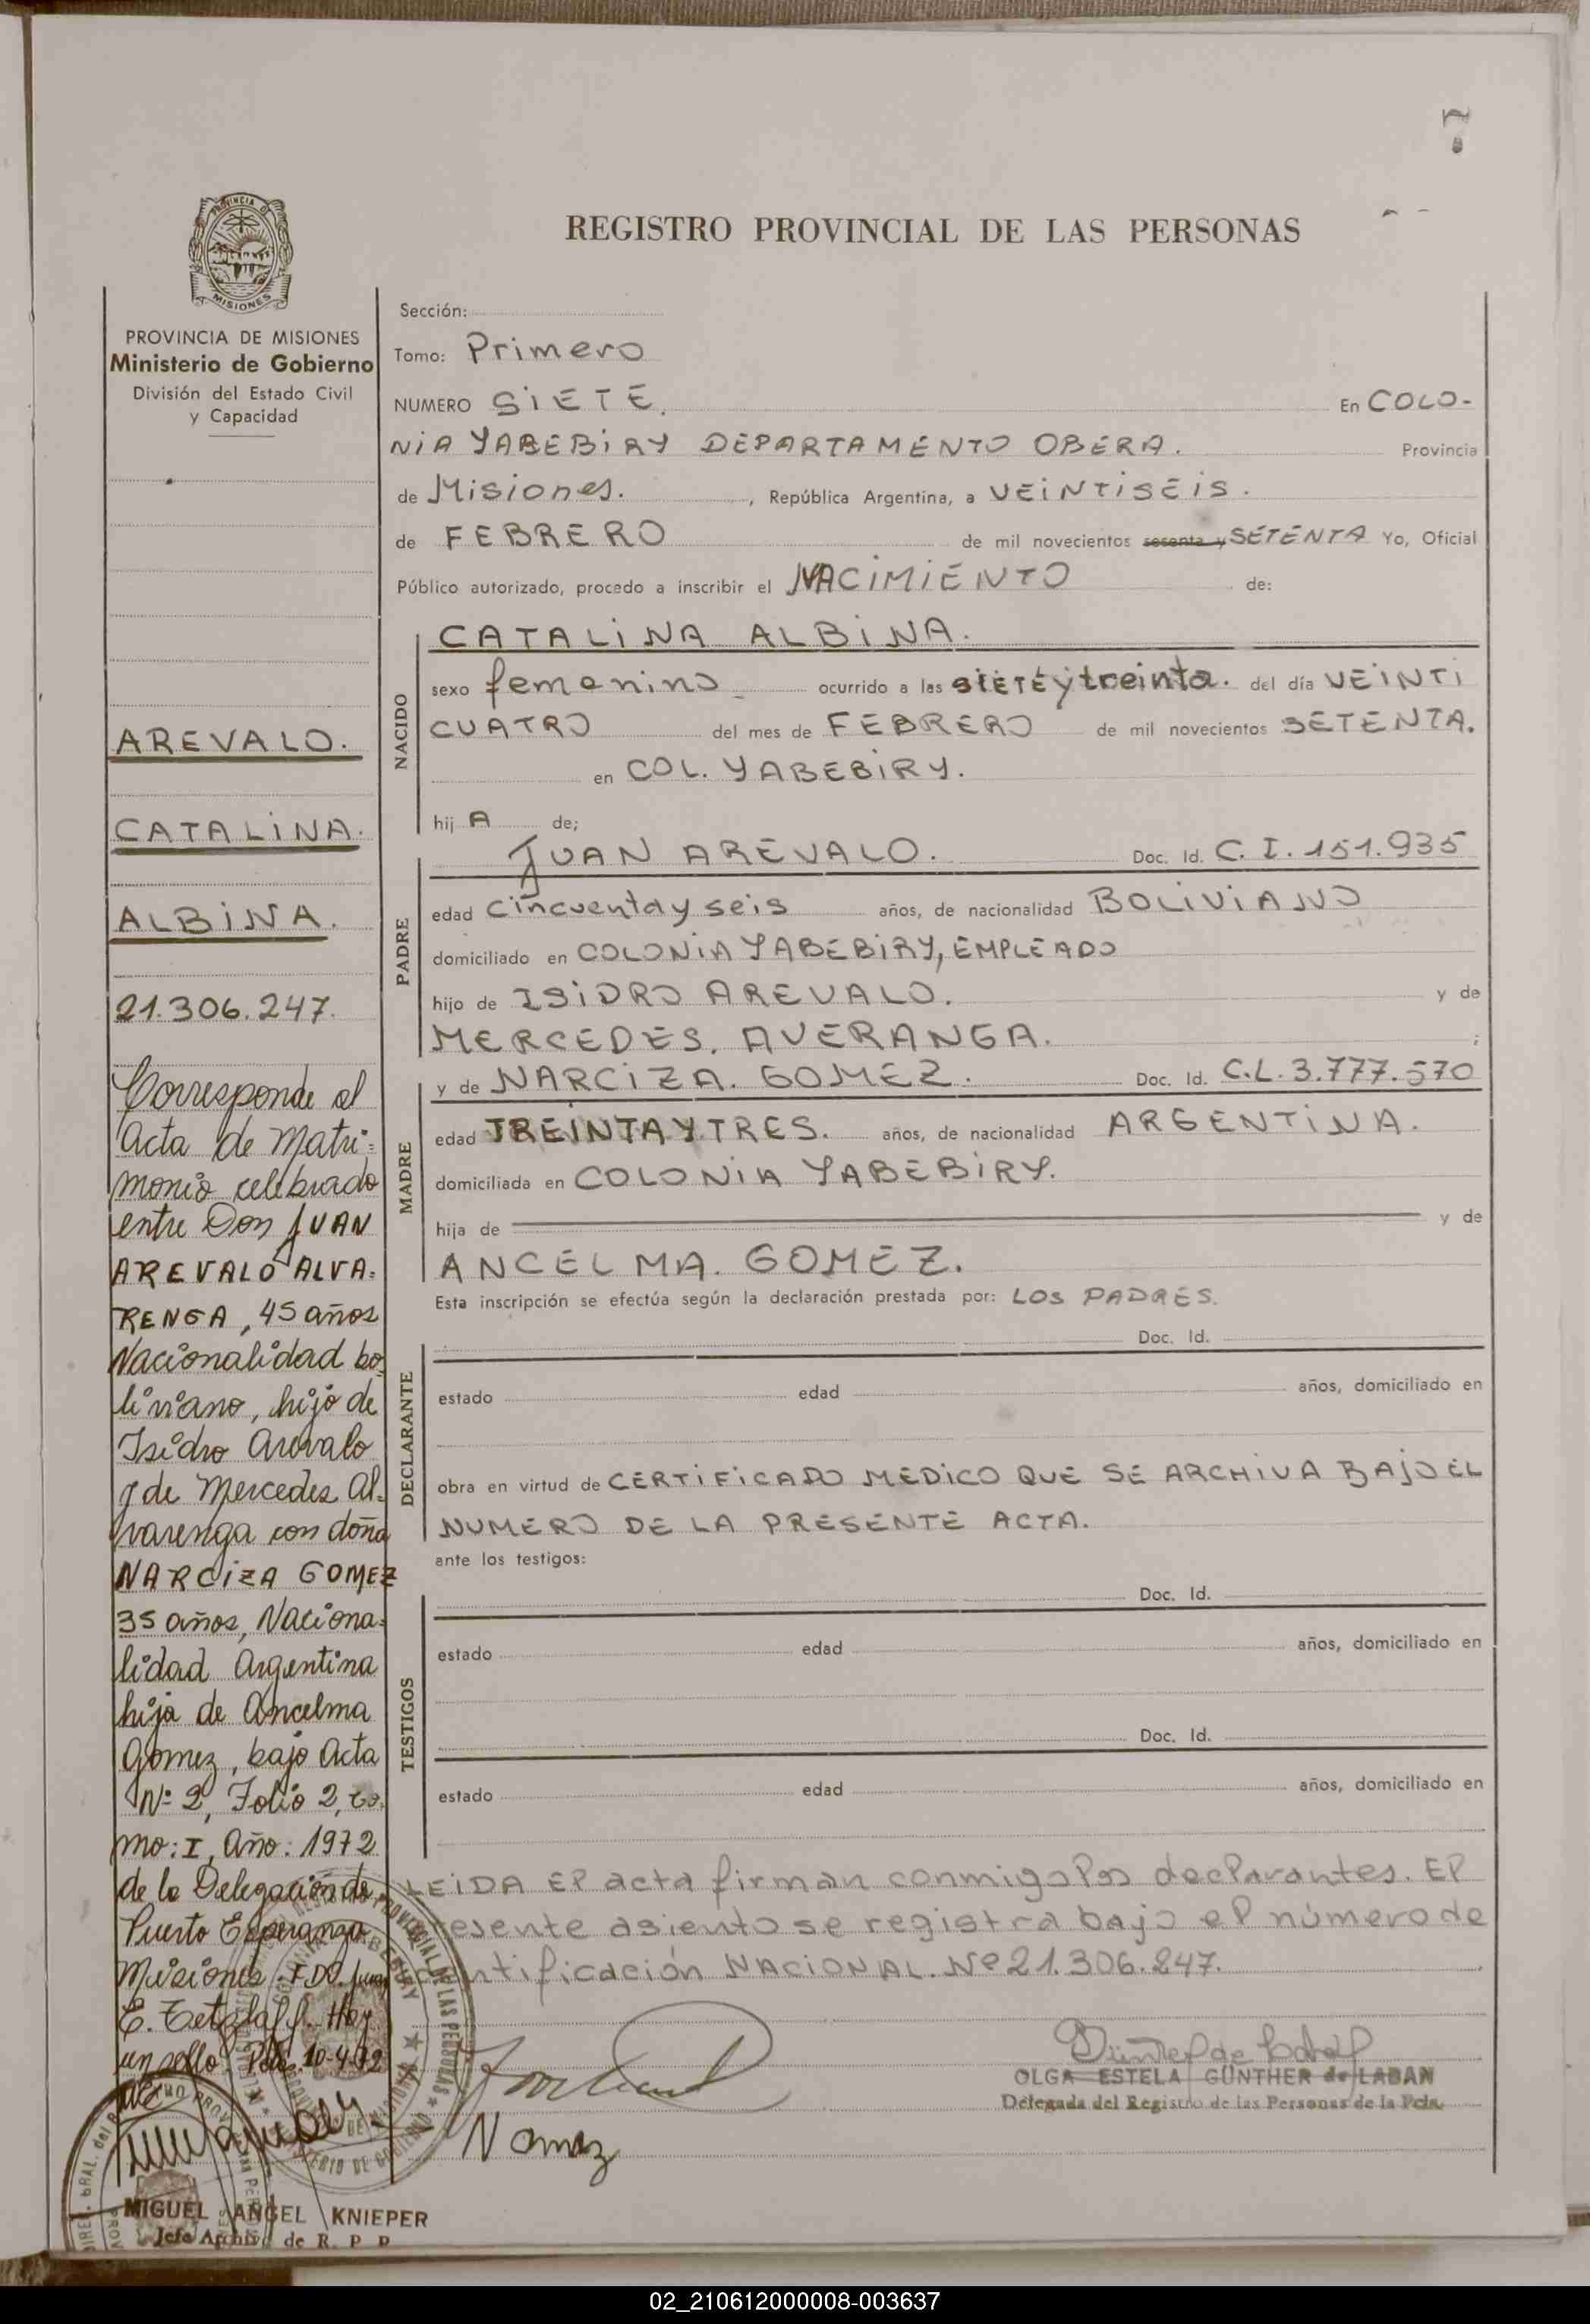 7
REGISTRO PROVINCIAL DE LAS PERSONAS
PROVINCIA DE MISIONES
Ministerio de Gobierno
División del Estado Civil
y Capacidad
AREVALO.
CATALINA.
ALBINA.
21.306.247.
Corresponde al
Acta de Matri=
monio celebrado
entre Don JUAN
AREVALO ALVA=
RENGA, 45 años
Nacionalidad bo
liviano, hijo de
Isidro Arevalo
y de Mercedes Al-
varenga con doña
NARCIZA GOMEZ
35 años, Naciona=
lidad Argentina
hija de Ancelma
Gomez, bajo Acta
Nº 2, Folio 2, to
mo: I, Año: 1972
de la Delegación de
Puerto Esperanza
Misiones. FDO. Juan
E. Hay
un sello. Pdas. 10-4-72
MIGUEL ANGEL KNIEPER
Jefe Archivo de R. P. P
Sección:
Tomo: Primero
NUMERO SIETE. En COLO-
NIA YABEBIRY DEPARTAMENTO OBERA. Provincia
de Misiones. , República Argentina, a VEINTISEIS.
de FEBRERO de mil novecientos sesenta y SETENTA Yo, Oficial
Público autorizado, procedo a inscribir el NACIMIENTO de:
NACIDO
CATALINA ALBINA.
sexo femenino ocurrido a las SIETE y treinta. del día VEINTI
CUATRO del mes de FEBRERO de mil novecientos SETENTA.
en COL. YABEBIRY.
hij A de;
PADRE
JUAN AREVALO. Doc. Id. C.I. 151.935
edad cincuenta y seis años, de nacionalidad BOLIVIANO
domiciliado en COLONIA YABEBIRY, EMPLEADO
hijo de ISIDRO AREVALO. y de
MERCEDES. AVERANGA. ;
MADRE
y de NARCIZA. GOMEZ. Doc. Id. C.L. 3.777.570
edad TREINTA Y TRES. años, de nacionalidad ARGENTINA.
domiciliada en COLONIA YABEBIRY.
hija de y de
ANCELMA. GOMEZ.
Esta inscripción se efectúa según la declaración prestada por: LOS PADRES.
DECLARANTE
Doc. Id.
estado edad años, domiciliado en
obra en virtud de CERTIFICADO MEDICO QUE SE ARCHIVA BAJO EL
NUMERO DE LA PRESENTE ACTA.
ante los testigos:
TESTIGOS
Doc. Id.
estado edad años, domiciliado en
Doc. Id.
estado edad años, domiciliado en
LEIDA El acta firman conmigo los declarantes. El
presente asiento se registra bajo el número de
identificación NACIONAL. Nº 21.306.247.
OLGA ESTELA GÜNTHER de LABAN
Delegada del Registro de las Personas de la Pcia.
02_210612000008-003637